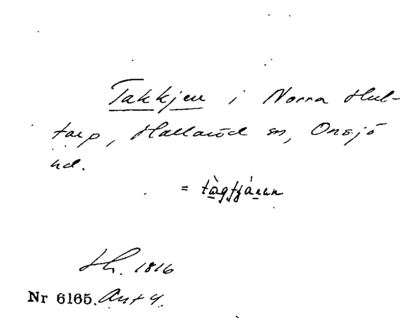 Takkjen i Norra Hul-
tarp, Hallaröd sn, Onsjö
hd.
= tàgtjánen
Lh. 1816
Nr 6165. Ant 4.